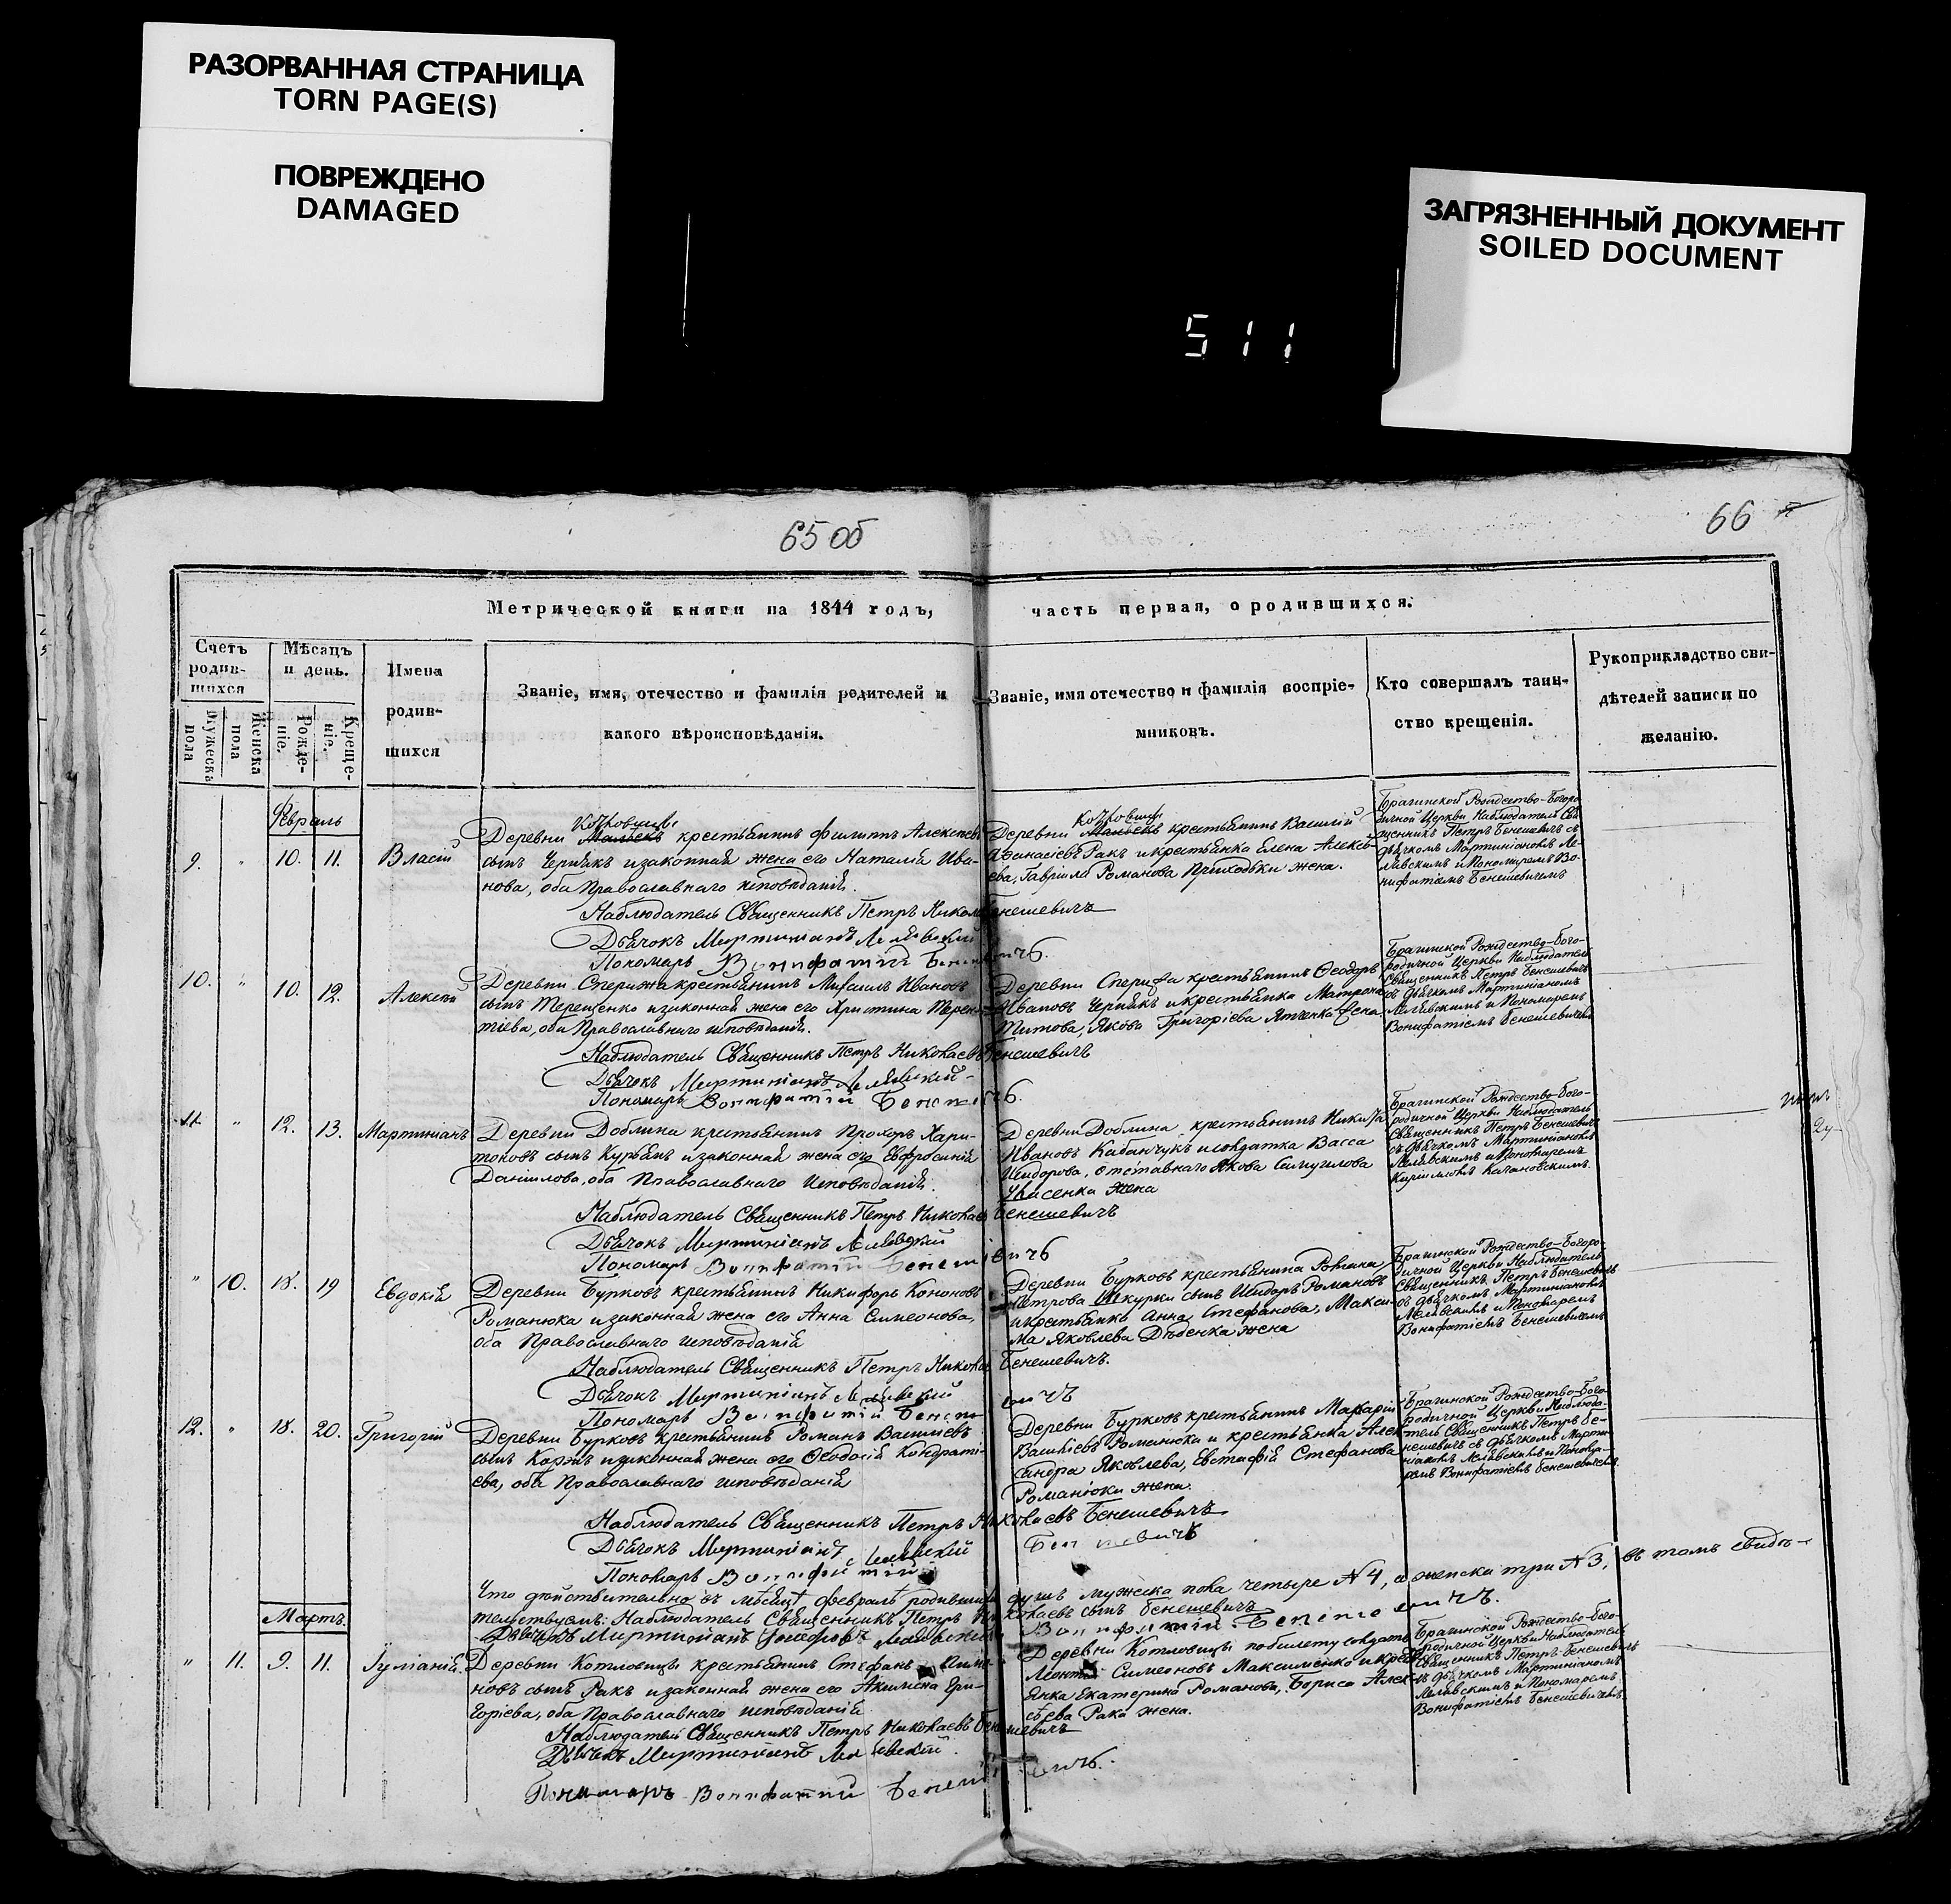 РАЗОРВАННАЯ СТРАНИЦА
TORN PAGE(S)
ПОВРЕЖДЕНО
DAMAGED
ЗАГРЯЗНЕННЫЙ ДОКУМЕНТ
SOILED DOCUMENT
511
65 об
66
Метрической книги на 1844 годъ,
часть первая, о родившихся.
Счетъ родив-шихся
Мужеска пола
Женска пола
Мѣсяцъ и день.
Рожде-ніе.
Креще-ніе.
Имена родив-шихся
Званіе, имя, отечество и фамилія родителей и
какого вѣроисповѣданія.
Званіе, имя отечество и фамилія воспріе-
мниковъ.
Кто совершалъ таин-
ство крещенія.
Рукоприкладство сви-
дѣтелей записи по
желанію.
Февраль
9. " 10. 11. Власій
Деревни крестьянинъ Филиппъ Алексѣевъ
сынъ Чернякъ и законная жена его Наталія Ива-
нова, оба Православнаго исповѣданія.
Деревни крестьянинъ Василій
Афанасіевъ Ракъ и крестьянка Елена Алексѣ-
ева, Гавріила Романова Приходьки жена.
Брагинской Рождество-Богоро-
дичной Церкви Наблюдатель Свя-
щенникъ Петръ Бенешевичъ съ
дьячкомъ Мартиніаномъ
и Пономаремъ Во-
нифатіемъ Бенешевичемъ
Наблюдатель Священникъ Петръ Никол Бенешевичъ
Дьячокъ Мартиніанъ
Пономарь Вонифатій Бенешевичъ.
10. " 10. 12. Алексѣй
Деревни Спериж крестьянинъ Михаилъ Ивановъ
сынъ Терещенко и законная жена его Христина Терен-
тіева, оба Православнаго исповѣданія.
Деревни крестьянинъ Ѳеодоръ
Ивановъ Чернякъ и крестьянка Матрона
Титова, Якова Григоріева Ятченка жена.
Брагинской Рождество-Бого-
родичной Церкви Наблюдатель
Священникъ Петръ Бенешевичъ
съ дьячкомъ Мартиніаномъ
и Пономаремъ
Вонифатіемъ Бенешевичемъ
Наблюдатель Священникъ Петръ Николаевъ Бенешевичъ
Дьячокъ Мартиніанъ
Пономарь Вонифатій Бенешевичъ.
11. " 12. 13. Мартиніанъ
Деревни Доблина крестьянинъ Прохоръ Хари-
тоновъ сынъ Курбанъ и законная жена его Евфросинія
Даніилова, оба Православнаго Исповѣданія.
Деревни Доблина крестьянинъ Никита
Ивановъ Кабанчукъ и солдатка Васса
Исидорова, отставнаго Якова Самуилова
жена
Брагинской Рождество-Бого-
родичной Церкви Наблюдатель
Священникъ Петръ Бенешевичъ
съ дьячкомъ Мартиніаномъ
и Пономаремъ
Кирилломъ Качановскимъ.
Наблюдатель Священникъ Петръ Николаевъ Бенешевичъ
Дьячокъ Мартиніанъ
Пономарь Вонифатій Бенешевичъ
" 10. 18. 19 Евдокія
Деревни Бурковъ крестьянинъ Никифоръ Кононовъ
Романюка и законная жена его Анна Симеонова,
оба Православнаго исповѣданія
Деревни Бурковъ крестьянина Романа
Петрова Шкурки сынъ Исидоръ Романовъ
и крестьянка Анна Стефанова, Макси-
ма Яковлева жена
Брагинской Рождество-Богоро-
дичной Церкви Наблюдатель
Священникъ Петръ Бенешевичъ
съ дьячкомъ Мартиніаномъ
и Пономаремъ
Вонифатіемъ Бенешевичемъ
Наблюдатель Священникъ Петръ Никола Бенешевичъ.
Дьячокъ Мартиніанъ
Пономарь Вонифатій Бенешевичъ
12. " 18. 20. Григорій
Деревни Бурковъ крестьянинъ Романъ Василіевъ
сынъ Коржъ и законная жена его Ѳеодосія Кондрати-
ева, оба Православнаго исповѣданія
Деревни Бурковъ крестьянинъ Макарій
Василіевъ Романюка и крестьянка Алек-
сандра Яковлева, Евстафія Стефанова
Романюки жена.
Брагинской Рождество-Бого-
родичной Церкви Наблюда-
тель Священникъ Петръ Бе-
нешевичъ съ дьячкомъ Марти-
ніаномъ и Понома-
ремъ Вонифатіемъ Бенешевичемъ
Наблюдатель Священникъ Петръ Николаевъ Бенешевичъ
Дьячокъ Мартиніанъ
Пономарь Вонифатій Бенешевичъ
Что дѣйствительно въ мѣсяцѣ февралѣ родившихся душъ мужеска пола четыре №4, а женска три №3, въ томъ свидѣ-
тельствуемъ: Наблюдатель Священникъ Петръ Николаевъ сынъ Бенешевичъ
Дьячокъ Мартиніанъ Вонифатій Бенешевичъ.
Мартъ.
" 11. 9. 11. Іуліанія
Деревни Котловицы крестьянинъ Стефанъ
новъ сынъ Ракъ и законная жена его Акилина Гри-
горіева, оба Православнаго исповѣданія
Деревни Котловицы по билету солдатъ
Леонтій Симеоновъ Максименко и кресть-
янка Екатерина Романова, Бориса Алек-
сѣева Рака жена.
Брагинской Рождество-Бого-
родичной Церкви Наблюдатель
Священникъ Петръ Бенешевичъ
съ дьячкомъ Мартиніаномъ
и Пономаремъ
Вонифатіемъ Бенешевичемъ
Наблюдатель Священникъ Петръ Николаевъ Бенешевичъ
Дьячокъ Мартиніанъ
Пономарь Вонифатій Бенешевичъ.